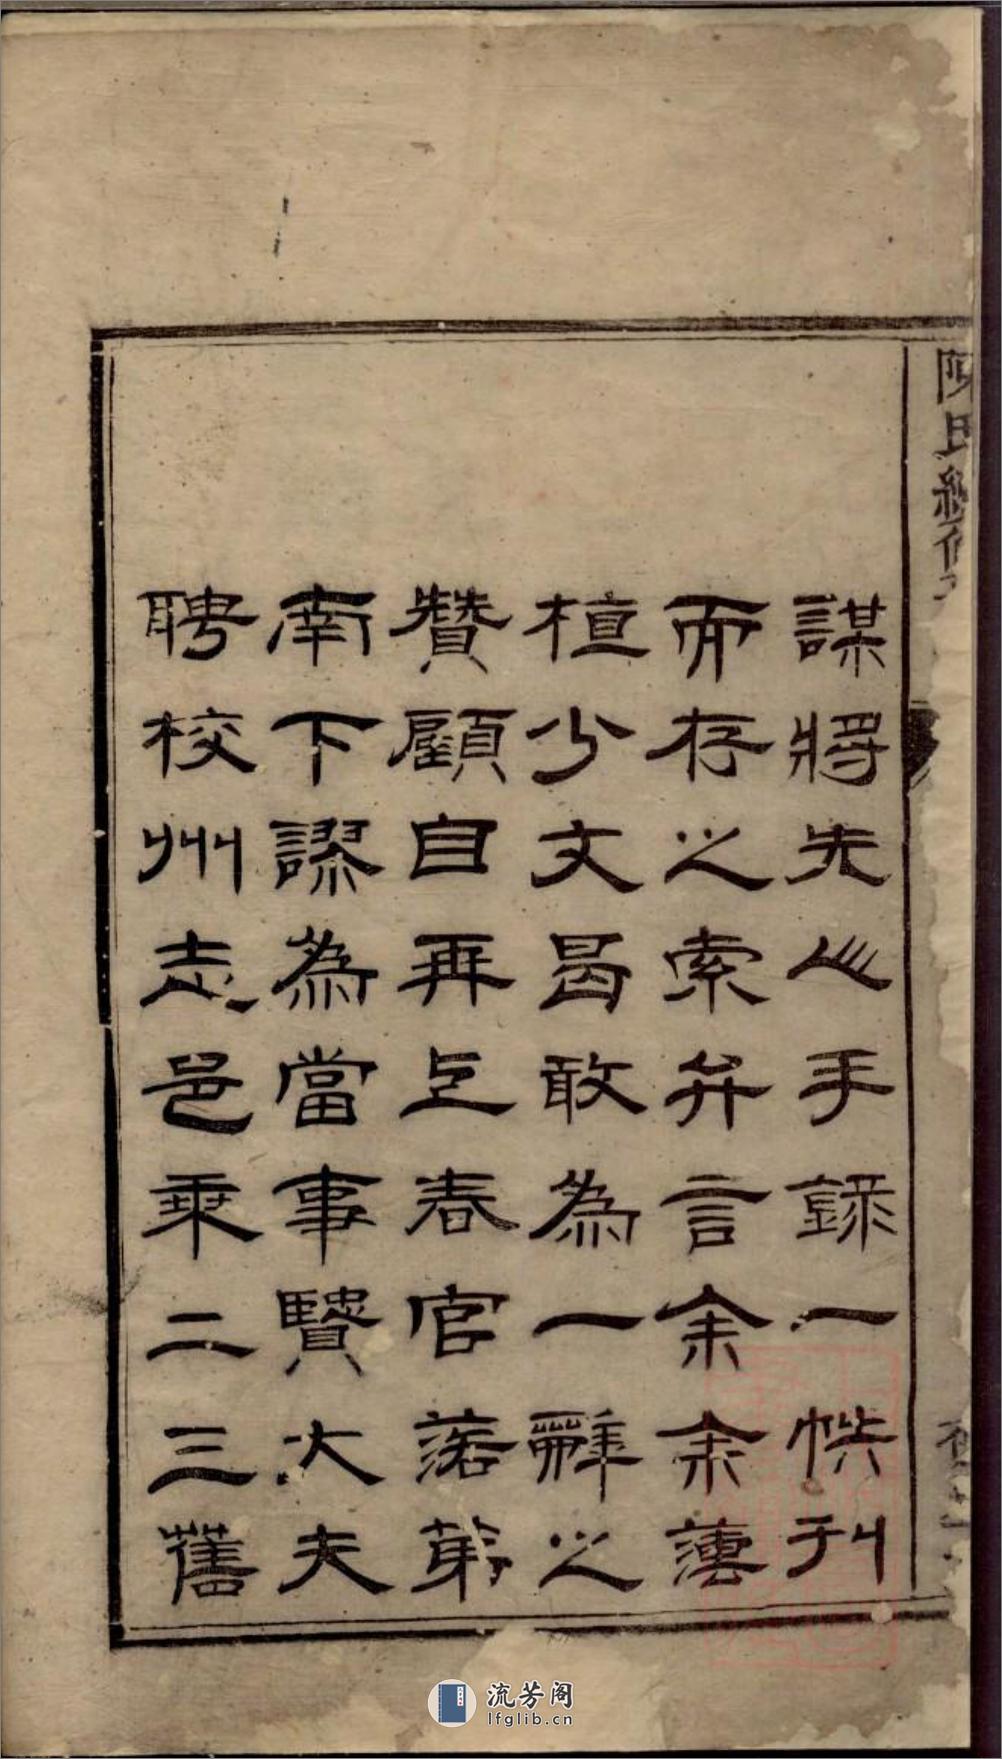 謀將先人手錄一帙刊
而存之索弁言余余讓
植少文曷敢為一辭之
贊顧自再上春官落第
南下謬為當事賢大夫
聘校州志邑乘二三舊
陳氏
流芳阁
lfglib.cn